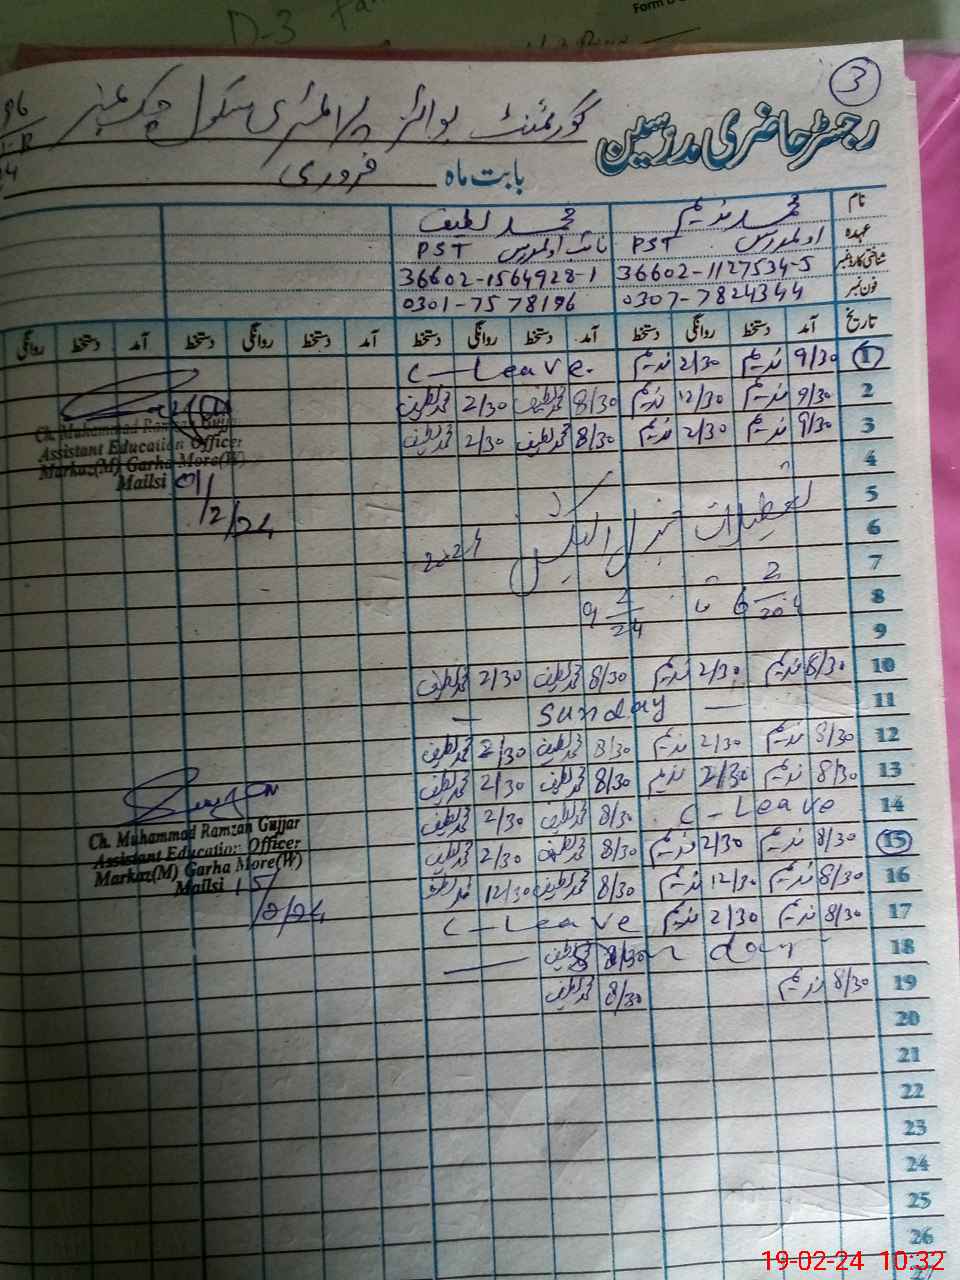 D-3
Form
3
رجسٹر حاضری مدرسین گورنمنٹ بوائز پرائمری سکول چک نمبر 96
بابت ماہ فروری
نام محمد ندیم محمد لطیف
عہدہ اول مدرس PST نائب اول مدرس PST
شناختی کارڈ نمبر 36602-1127534-5 36602-1564928-1
فون نمبر 0307-7824344 0301-7578196
تاریخ آمد دستخط روانگی دستخط آمد دستخط روانگی دستخط آمد دستخط روانگی دستخط آمد دستخط روانگی
1 9/30 ندیم 2/30 ندیم C-Leave.
2 9/30 ندیم 12/30 ندیم 8/30 محمد لطیف 2/30 محمد لطیف
3 9/30 ندیم 2/30 ندیم 8/30 محمد لطیف 2/30 محمد لطیف
Ch. Muhammad Ramzan Gujjar
Assistant Education Officer
Markaz(M) Garha More(W)
Mailsi 01/2/24
4
5
6 تعطیلات جنرل الیکشن 2024
7
8 6 2/2024 تا 9 2/24
9
10 8/30 ندیم 2/30 ندیم 8/30 محمد لطیف 2/30 محمد لطیف
11 — Sunday —
12 8/30 ندیم 2/30 ندیم 8/30 محمد لطیف 2/30 محمد لطیف
13 8/30 ندیم 2/30 ندیم 8/30 محمد لطیف 2/30 محمد لطیف
14 C-Leave 8/30 محمد لطیف 2/30 محمد لطیف
15 8/30 ندیم 2/30 ندیم 8/30 محمد لطیف 2/30 محمد لطیف
16 8/30 ندیم 12/30 ندیم 8/30 محمد لطیف 12/30 محمد لطیف
Ch. Muhammad Ramzan Gujjar
Assistant Education Officer
Markaz(M) Garha More(W)
Mailsi 15/2/24
17 8/30 ندیم 2/30 ندیم C-Leave
18 8/30 محمد لطیف day
19 8/30 ندیم 8/30 محمد لطیف
20
21
22
23
24
25
26
27
19-02-24 10:32